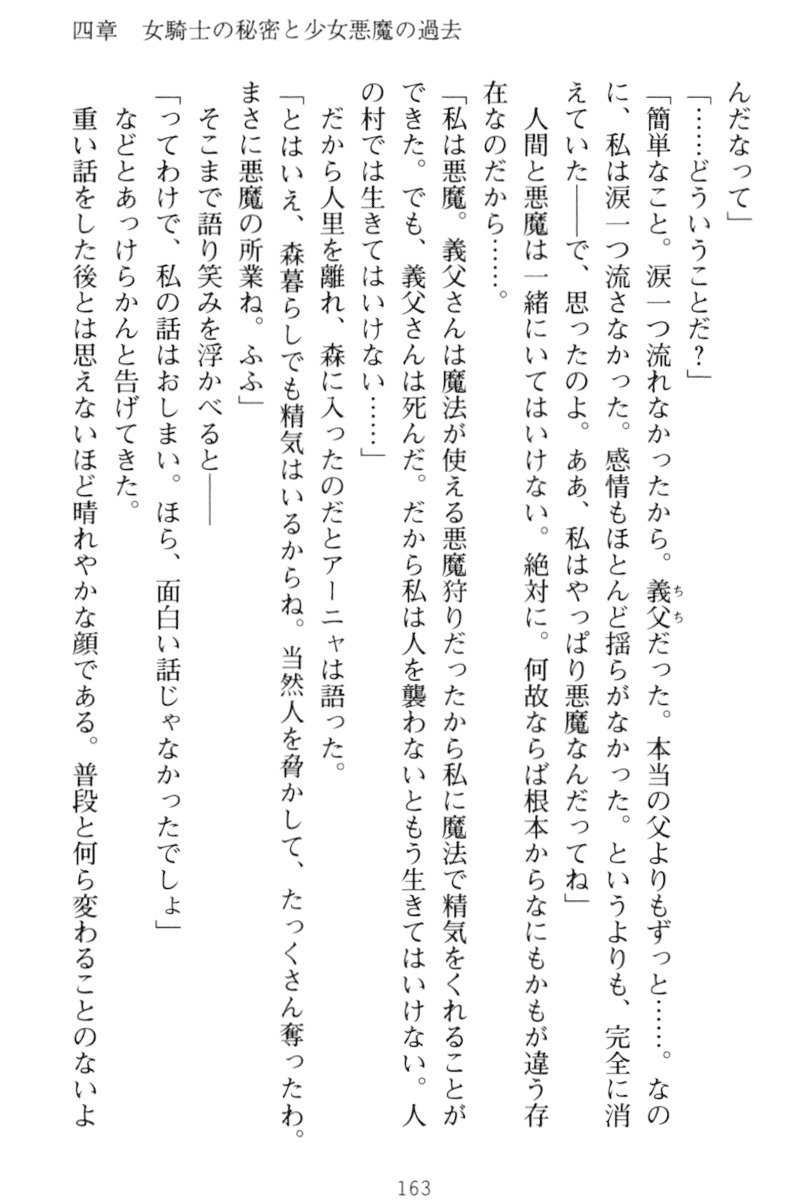 四章　女騎士の秘密と少女悪魔の過去
んだなって」
「……どういうことだ？」
「簡単なこと。涙一つ流れなかったから。義父ちちだった。本当の父よりもずっと……。なの
に、私は涙一つ流さなかった。感情もほとんど揺らがなかった。というよりも、完全に消
えていた――で、思ったのよ。ああ、私はやっぱり悪魔なんだってね」
　人間と悪魔は一緒にいてはいけない。絶対に。何故ならば根本からなにもかもが違う存
在なのだから……。
「私は悪魔。義父さんは魔法が使える悪魔狩りだったから私に魔法で精気をくれることが
できた。でも、義父さんは死んだ。だから私は人を襲わないともう生きてはいけない。人
の村では生きてはいけない……」
　だから人里を離れ、森に入ったのだとアーニャは語った。
「とはいえ、森暮らしでも精気はいるからね。当然人を脅かして、たっくさん奪ったわ。
まさに悪魔の所業ね。ふふ」
　そこまで語り笑みを浮かべると――
「ってわけで、私の話はおしまい。ほら、面白い話じゃなかったでしょ」
　などとあっけらかんと告げてきた。
　重い話をした後とは思えないほど晴れやかな顔である。普段と何ら変わることのないよ
163